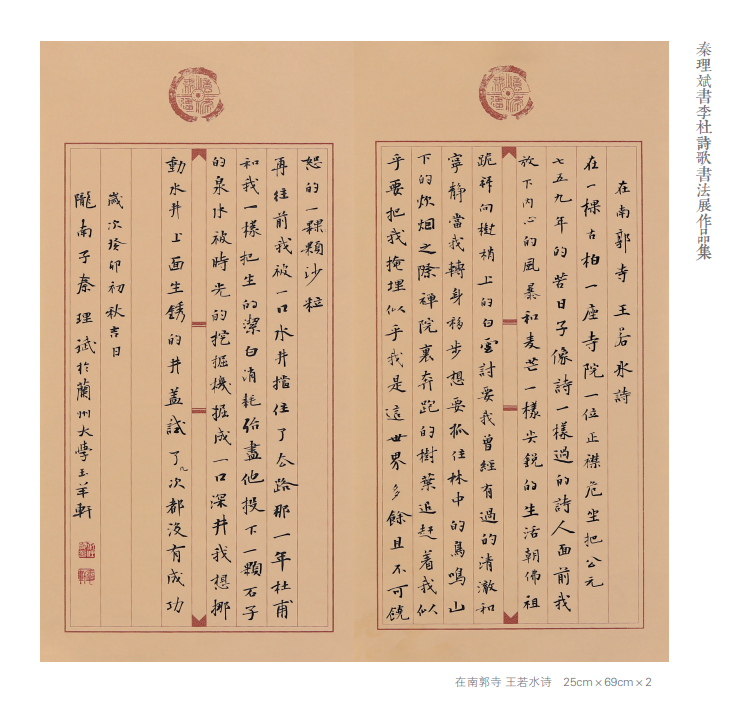 秦理斌書李杜詩歌書法展作品集
在南郭寺 王若水詩
在一棵古柏一座寺院一位正襟危坐把公元
七五九年的苦日子像詩一樣過的詩人面前我
放下内心的風暴和麦芒一樣尖銳的生活朝佛祖
跪拜向樹梢上的白雲討要我曾經有過的清澈和
寧静當我轉身移步想要抓住林中的鳥鳴山
下的炊烟之際禪院裏奔跑的樹葉追赶着我似
乎要把我掩埋似乎我是這世界多餘且不可饒
恕的一顆顆沙粒
再往前我被一口水井擋住了去路那一年杜甫
和我一樣把生的潔白消耗殆盡他投下一顆石子
的泉水被時光的挖掘機掘成一口深井我想挪
動水井上面生銹的井蓋試了九次都没有成功
歲次癸卯初秋吉日
隴南子秦理斌於蘭州大學玉羊軒
在南郭寺 王若水诗 25cm×69cm×2